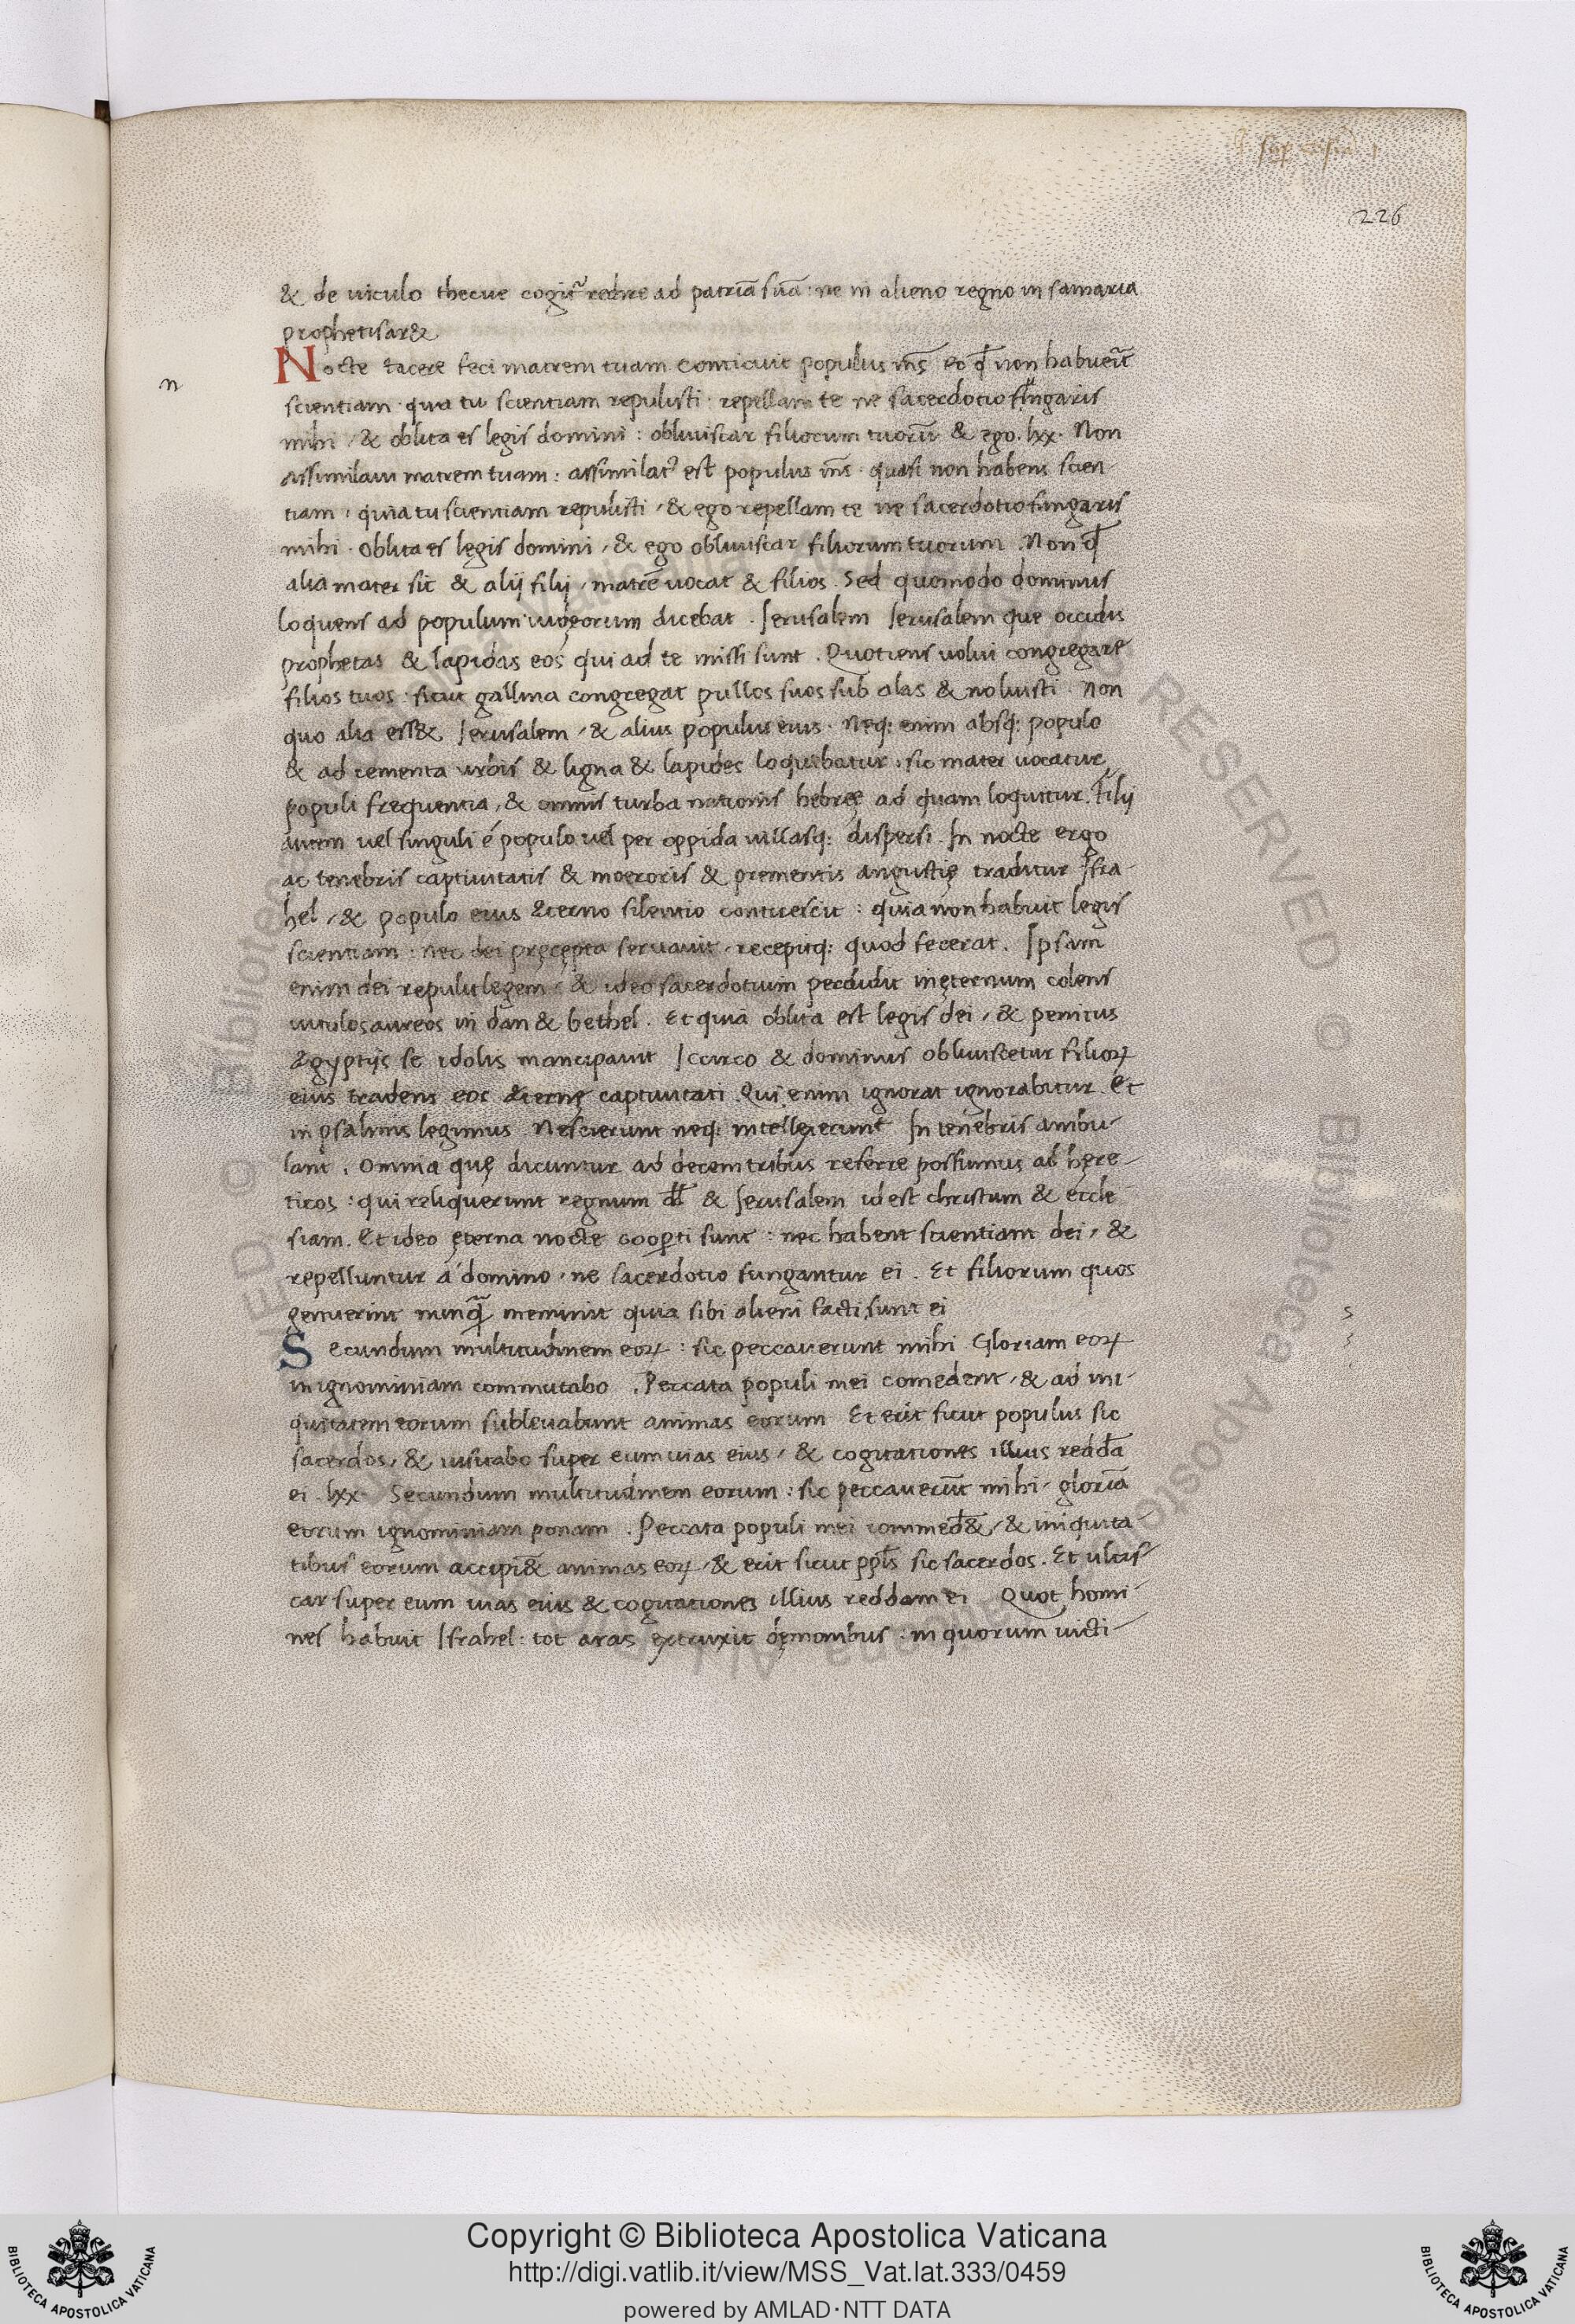 226
& de uiculo thecue cogit᷑ redire ad patriā suā : ne in alieno regno in samaria
prophetisar&
Nocte tacere feci matrem tuam conticuit populus m̅s eo q̅ non habuerīt
n
scientiam · quia tu scientiam repulisti · repellam te ne sacerdotio fungaris
mihi / & oblita es legis domini : obliuiscar filiorum tuorū & ego · lxx · Non
assimilaui matrem tuam : assimilatꝰ est populus m̅s · quasi non habens scien-
tiam / quia tu scientiam repulisti / & ego repellam te ne sacerdotio fungaris
mihi · oblita es legis domini / & ego obliuiscar filiorum tuorum . Non q̅
alia mater sit & alij filij / matrē uocat & filios . Sed quomodo dominus
loquens ad populum iudęorum dicebat . Ierusalem Ierusalem que occidis
prophetas & lapidas eos qui ad te missi sunt . Quotiens uolui congregare
filios tuos : sicut gallina congregat pullos suos sub alas & noluisti . Non
quo alia ess& Ierusalem / & alius populus eius · Neq: enim absq: populo
& ad cementa urbis & ligna & lapides loquebatur : sic mater uocatur
populi frequentia / & omnis turba nationis hebręę ad quam loquitur . Filij
autem uel singuli é populo uel per oppida uillasq: dispersi . In nocte ergo
ac tenebris captiuitatis & moeroris & prementis angustię traditur Isra-
hel / & populo eius æterno silentio conticescit : quia non habuit legis
scientiam : nec dei pręcepta seruauit / recepitq: quod fecerat . Ipsam
enim dei repulit legem / & ideo sacerdotium perdidit in ęternum colens
uitulos aureos in dan & bethel . Et quia oblita est legis dei / & penitus
ægyptijs se idolis mancipauit Iccirco & dominus obliuiscetur filioꝝ
eius tradens eos æternę captiuitati . Qui enim ignorat ignorabitur . Et
in psalmis legimus . Nescierunt neq: intellexerunt In tenebris ambu-
lant . Omnia quę dicuntur ad decem tribus referre possumus ad hęre-
ticos : qui reliquerunt regnum dd̅ & Ierusalem id est christum & eccle-
siam . Et ideo ęterna nocte cooꝑti sunt : nec habent scientiam dei / &
repelluntur á domino / ne sacerdotio fungantur ei . Et filiorum quos
genuerint nunq̅ meminit quia sibi alieni facti sunt ei
s
s
Secundum multitudinem eoꝝ : sic peccauerunt mihi Gloriam eoꝝ
in ignominiam commutabo . Peccata populi mei comedent / & ad ini-
quitatem eorum subleuabunt animas eorum Et erit sicut populus sic
sacerdos / & uisitabo super eum uias eius / & cogitationes illius reddā
ei . lxx · Secundum multitudinem eorum : sic peccauerūt mihi / gloriā
eorum ignominiam ponam . Peccata populi mei commed& / & iniquita-
tibus eorum accipi& animas eoꝝ / & erit sicut pp̅ls sic sacerdos . Et ulcis-
car super eum uias eius & cogitationes illius reddam ei Quot homi-
nes habuit Israhel : tot aras extruxit dęmonibus · in quorum uicti-
Copyright © Biblioteca Apostolica Vaticana
http://digi.vatlib.it/view/MSS_Vat.lat.333/0459
powered by AMLAD·NTT DATA
BIBLIOTECA APOSTOLICA VATICANA
BIBLIOTECA APOSTOLICA VATICANA